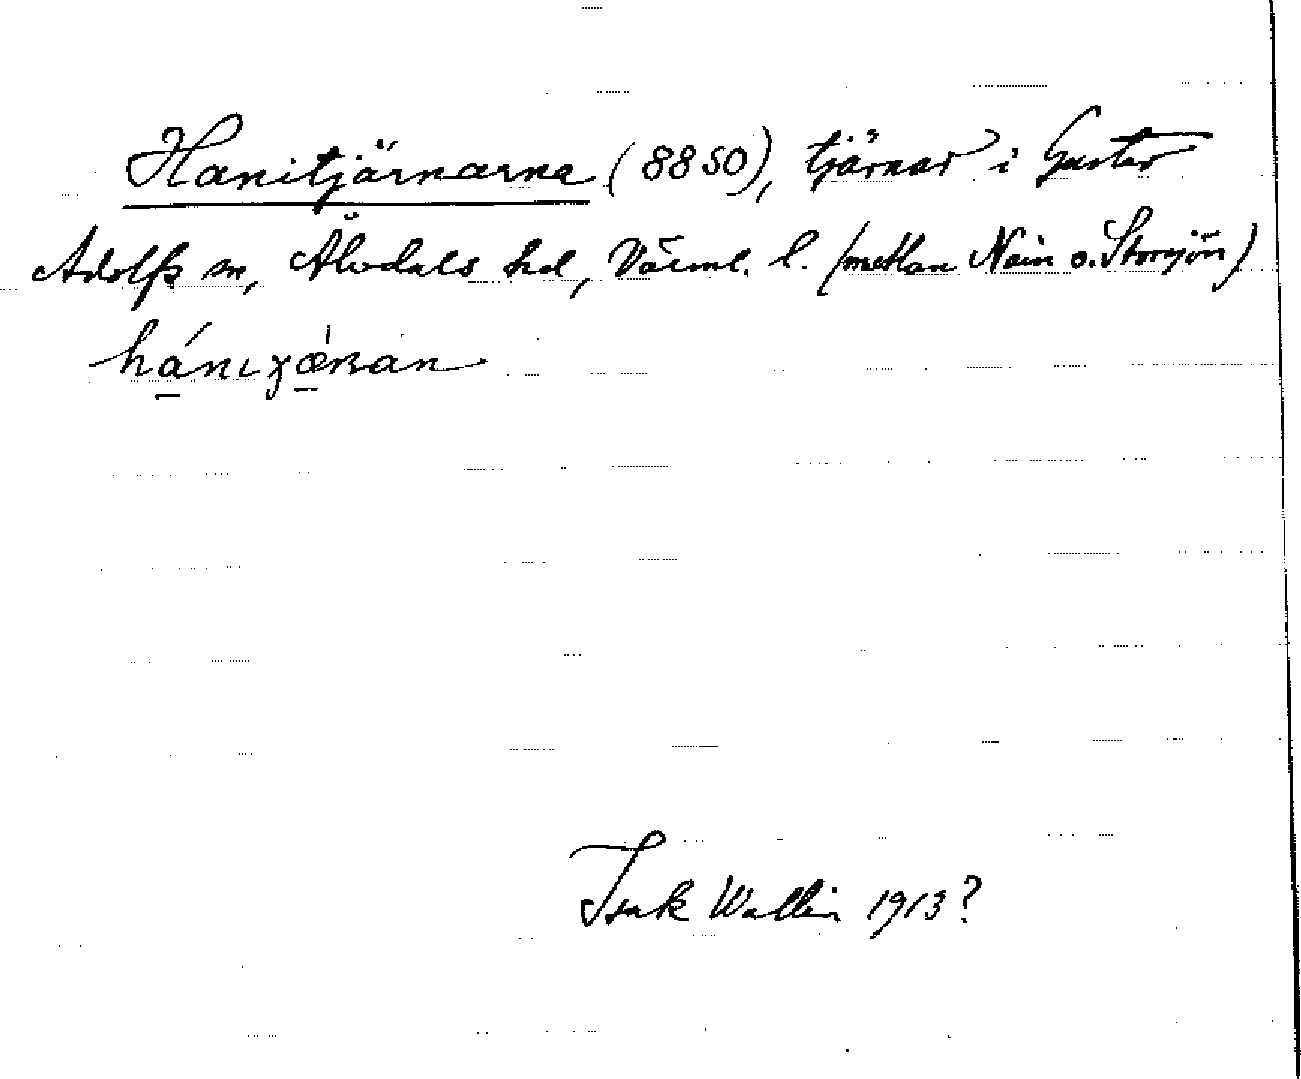 Hanitjärnarna (8850), tjärnar i Gustav
Adolfs sn, Älvdals hd, Värml. l. (mellan Näin o. Storsjön)
Isak Wallin 1913?